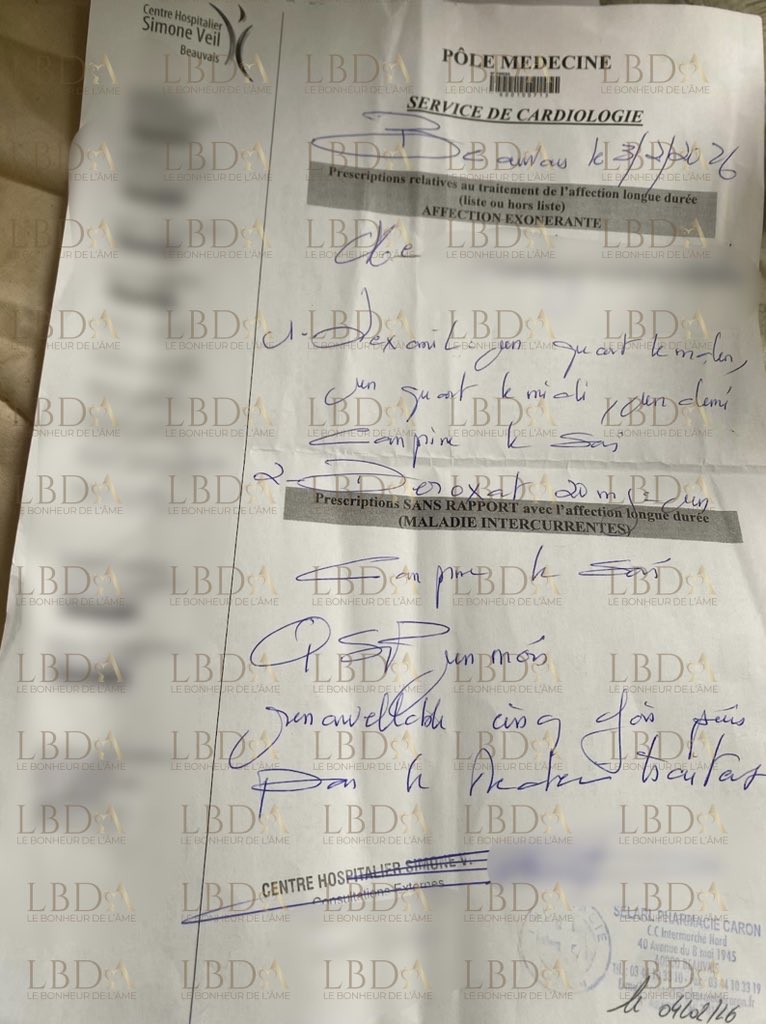 Centre Hospitalier
Simone Veil
Beauvais
PÔLE MEDECINE
SERVICE DE CARDIOLOGIE
Beauvais le 3/2/2026
Prescriptions relatives au traitement de l'affection longue durée
(liste ou hors liste)
AFFECTION EXONERANTE
1- un quart le matin,
un quart le midi, un demi
comprimé le soir
2- Deroxat 20 mg: un
Prescriptions SANS RAPPORT avec l'affection longue durée
(MALADIE INTERCURRENTES)
comprimé le soir
QSP un mois
renouvellable cinq fois puis
par le traitant
CENTRE HOSPITALIER SIMONE V.
Consultations Externes
SELARL PHARMACIE CARON
C.C Intermarché Nord
40 Avenue du 8 mai 1945
60000 BEAUVAIS
03 44 10 33 19
04/02/26
LBDA
LE BONHEUR DE L'ÂME